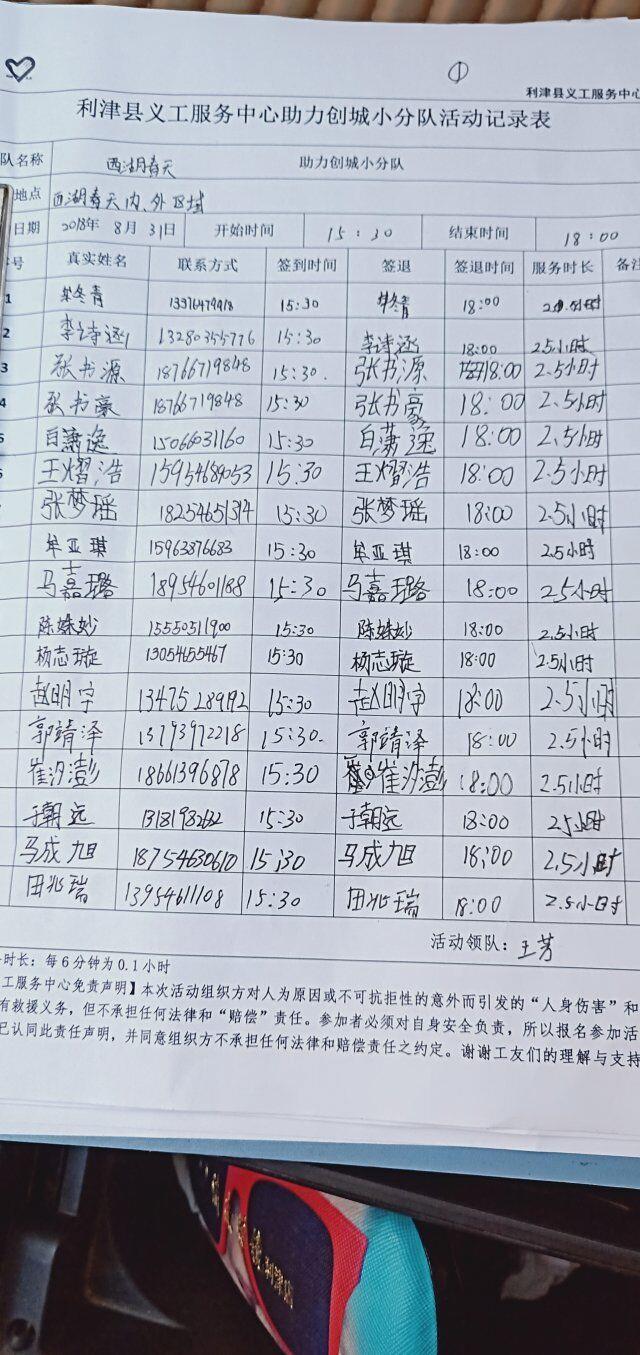 ①
利津县义工服务中心
利津县义工服务中心助力创城小分队活动记录表
队名称 西湖春天 助力创城小分队
地点 西湖春天内、外区域
日期 2018年 8月 31日 开始时间 15:30 结束时间 18:00
号 真实姓名 联系方式 签到时间 签退 签退时间 服务时长 备注
1 牟冬青 13376479918 15:30 牟冬青 18:00 小时
2 李诗涵 13280355776 15:30 李诗涵 18:00 2.5小时
3 张书源 18766719848 15:30. 张书源 18:00 2.5小时
4 张书豪 18766719848 15:30 张书豪 18:00 2.5小时
5 白潇逸 15066031160 15:30 白潇逸 18:00 2.5小时
王熠浩 15954689053 15:30 王熠浩 18:00 2.5小时
张梦瑶 18254651314 15:30 张梦瑶 18:00 2.5小时
牟亚琪 15963876683 15:30 牟亚琪 18:00 2.5小时
马嘉璐 18954601188 15:30 马嘉璐 18:00 2.5小时
陈姝妙 15550511900 15:30 陈姝妙 18:00 2.5小时
杨志璇 13054655467 15:30 杨志璇 18:00 2.5小时
赵明宇 13475289192 15:30 赵明宇 18:00 2.5小时
郭靖泽 13793972218 15:30. 郭靖泽 18:00 2.5小时
崔汐澎 18661396878 15:30 崔汐澎 18:00 2.5小时
于朝远 13181982632 15:30 于朝远 18:00 2.5小时
马成旭 18754630610 15:30 马成旭 18:00 2.5小时
田兆瑞 13954611108 15:30 田兆瑞 18:00 2.5小时
活动领队：王芳
时长：每6分钟为0.1小时
工服务中心免责声明】本次活动组织方对人为原因或不可抗拒性的意外而引发的“人身伤害”和
有救援义务，但不承担任何法律和“赔偿”责任。参加者必须对自身安全负责，所以报名参加活
已认同此责任声明，并同意组织方不承担任何法律和赔偿责任之约定。谢谢工友们的理解与支持